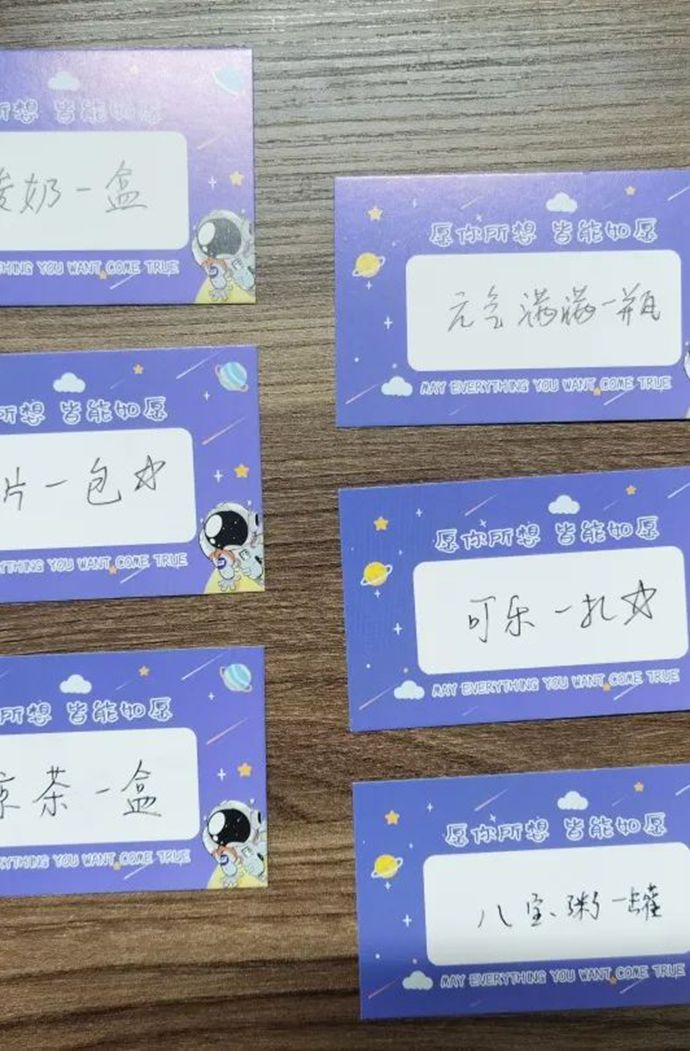 所想 皆能如愿
酸奶一盒
EVERYTHING YOU WANT COME TRUE
所想 皆能如愿
片一包☆
EVERYTHING YOU WANT COME TRUE
所想 皆能如愿
凉茶一盒
EVERYTHING YOU WANT COME TRUE
愿你所想 皆能如愿
元气满满一瓶
MAY EVERYTHING YOU WANT COME TRUE
愿你所想 皆能如愿
可乐一扎☆
MAY EVERYTHING YOU WANT COME TRUE
愿你所想 皆能如愿
八宝粥一罐
MAY EVERYTHING YOU WANT COME TRUE